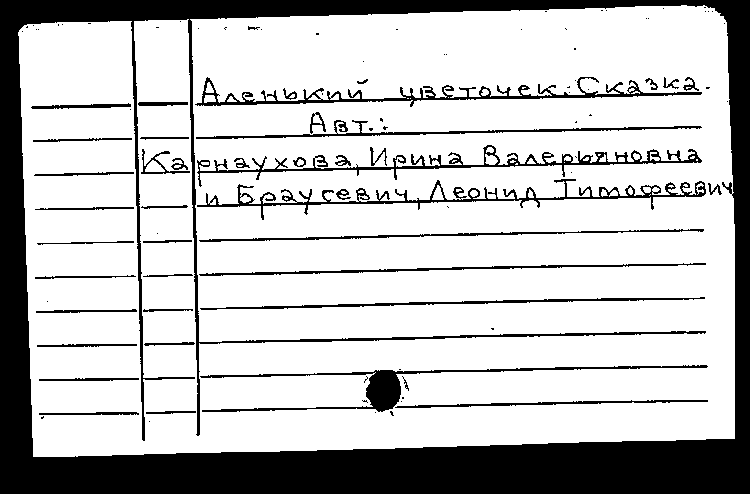 Аленький цветочек. Сказка.
Авт.:
Карнаухова, Ирина Валерьяновна
и Браусевич, Леонид Тимофеевич